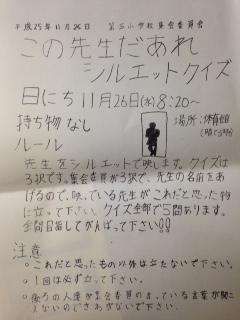 平成25年11月26日 第五小学校集会委員会
この先生だあれ
シルエットクイズ
日にち11月26日(水)8:20~
持ち物なし
場所:体育館
ルール
先生をシルエットで映します。クイズは
3択です。集会委員が3択で、先生の名前をあ
げるので、映っている先生がこれだと思った物
に立って下さい。クイズ全部で5問あります。
全問目指してがんばって下さい!!
注意
○これだと思ったもの以外は立たないで下さい。
○1回は必ず立って下さい。
○後ろの人達が集会委員の言っている言葉が聞こ
えないのでさわがないで下さい。